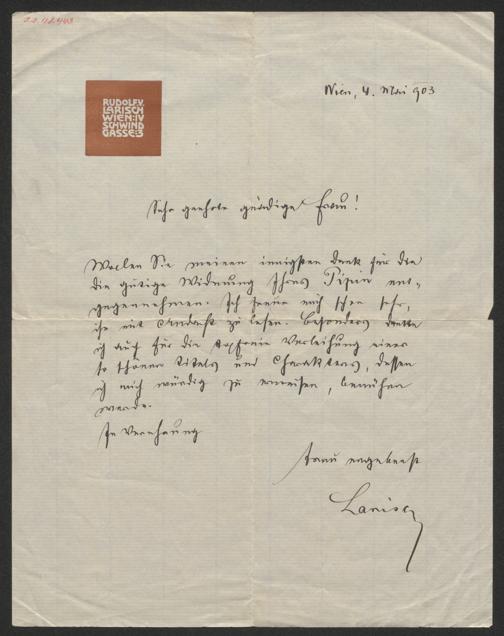 RUDOLF V.
LARISCH
WIEN: IV
SCHWIND
GASSE: 3
Wien, 4. Mai 903
Sehr geehrte gnädige Frau!
Wollen Sie meinen innigsten Dank für die
die gütige Widmung Ihres Pipin ent-
gegennehmen. Ich freue mich schon sehr,
ihn mit Andacht zu lesen. Besonders danke
ich auch für die Verleihung eines
so schönen Titels und Charakters, dessen
ich mich würdig zu erweisen, bemühen
werde.
In Verehrung
Ihnen ergebenst
Larisch